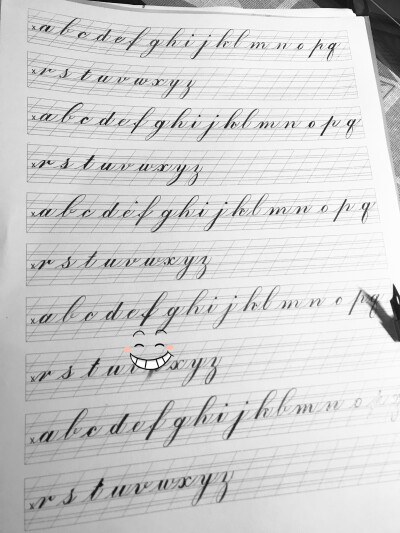 x a b c d e f g h i j k l m n o p q
x r s t u v w x y z
x a b c d e f g h i j k l m n o p q
x r s t u v w x y z
x a b c d e f g h i j k l m n o p q
x r s t u v w x y z
x a b c d e f g h i j k l m n o p q
x r s t u v x y z
x a b c d e f g h i j k l m n o
x r s t u v w x y z